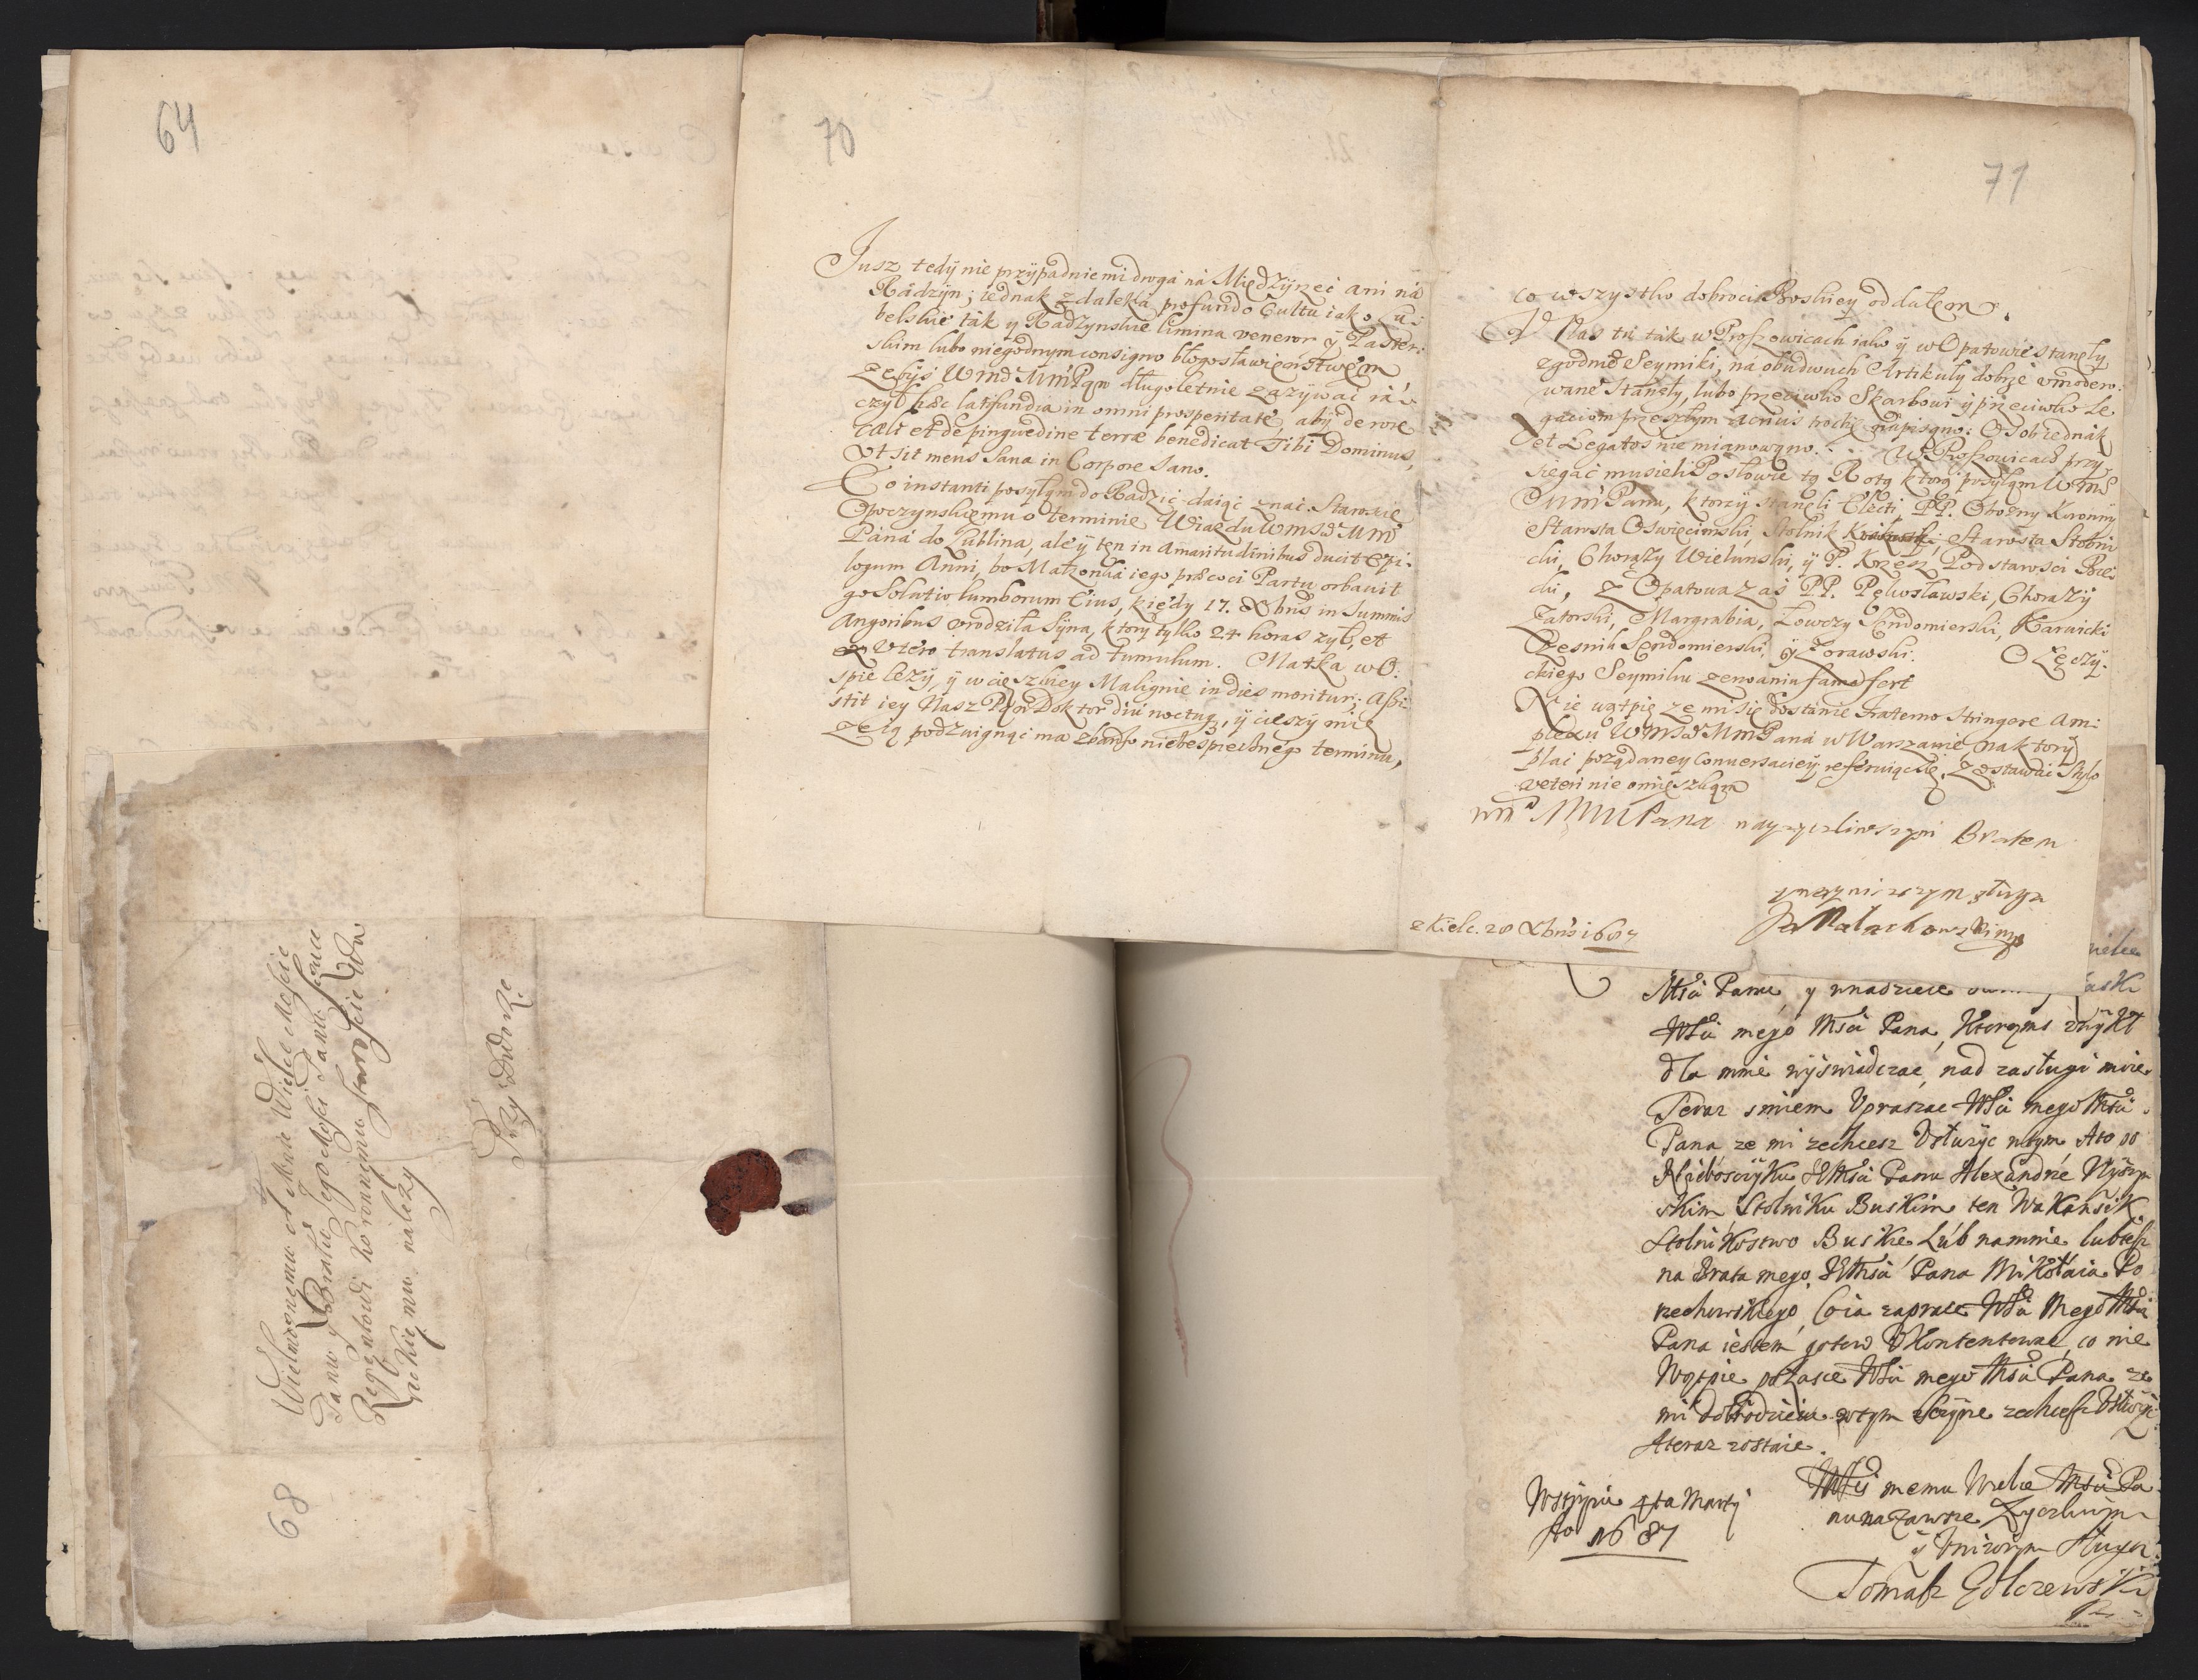 64
70
Jusz tedÿ nie przÿpadnie mi droga ná MiędzÿRzéć ani ná
Rádzÿn; iednak zdaleká profundo Cultu iako Lu:
belskié ták y Radzynskié limina veneror ÿ Paster:
skim lubo niegodnym consigno błogosławięństwęm
zębÿś WMść MmPąn długoletnie zażÿwać rá:
czÿł hæc latifundia in omni prosperitate, abÿ de rore
Cæli et de pinguedine terræ benedicat Tibi Dominus,
Vt sit mens Sana in Corpore Sano.
Co instanti posÿłąm do Radzic daiąc znać Starośćie
Opoczynskięmu o terminie Wiazdu WMści Mm
Páná do Lublina, ale ÿ tęn in amaritudinibus ducit Epi:
logum Anni, bo Małzonká iego præcoci Partu orbavit
go Solatio lumborum Eius, kiędy 17. Xbris in summis
Angoribus vrodziła Sÿna, ktory tylko 24 horas zył, et
ex Vtero translatus ad tumulum. Matka w O:
spie lezÿ, ÿ w cięszkiey Malignie in dies moritur; assi
stit iey Nasz Pąn Doktor diu noctuq, ÿ cieszÿ mię
ze ią podzwignąć ma z bardzo niebespiecznégo terminu,
71
co wszystko dobroci Boskiey oddałem.
V Nas tu ták w Proszowicach iako ÿ w Opatowie stanęłÿ
zgodnié Seymiki, ná obudwuch Artikułÿ dobrzé vmodero:
wané stanęłÿ, lubo przeciwko Skarbowi ÿ przeciwko Le
gaciom przeszłym acrius trochę nápisąno: Osob iednák
et Legatos nie miąnowąno. W Proszowicach przy:
sięgać musieli Posłowie tą Rotą ktorą posyłąm WMć
Mm Panu, ktorzÿ stanęli Electi, PP. Obozny Koronnÿ
Starosta Oswięcimski, Stolnik Krakowski, Starosta Stobni
cki, Chorązÿ Wielunski, ÿ P. Krzesz Podstarosci Bie:
cki, Z Opatowa zaś PP. Pękosławski Chorązÿ
Zatorski, Margrabia, Łowczy Sendomierski, Karwicki
Czesnik Sendomierski, ÿ Zorawski. O Łęczÿ:
ckiego Seymiku zerwaniu fama fert
Nie wątpię ze mi się dostánie fraterno stringere am:
plexu WMści MmPaná w Warszawie, na ktorÿ
plac pożądaney Conversaciey referuiąc się, zostawáć Stylo
veteri nie omięszkąm
WMć MMPana nayzyczliwszym Bratem
y naynizszym sługą
Jan Małachowski mp
z Kielc. 28 Xbris 1687
Wielmoznemu A Mnie Wielce Mosćie
Panu y Bratu Jego Mosci Panu
Regentowi Koronnemu Staroscie
nskięmu nalezy
Przy Dworze
68
wielce
Msći Panu, y w nadzieie
łaski
WSci mego Msci Pana, Ktorąms zwÿkł
dla mnie wÿswiadczac, nad zasługi moie
Teraz smiem Vpraszac WSci mego Msci
Pana ze mi zechcesz Vsłuzÿc w tym Ato po
Niebosczÿku JMsci Panu Alexandrze
skim Stolniku Buskim ten Wakansik
Stolnikostwo Buskie Lub na mnie lubtesz
na Brata mego JMsci Pana Mikołaia Po
rzechowskiego, Co ia za prace WSci Mego Msci
Pana iestem gotow Vkontentowac, co nie
Wątpie po Łasce WSci mego Msci Pana ze
mi dobrodzieiu w tym zechcesz Vsłuzÿc
Ateraz zostaie.
WMSci memu Wielce Msci Pa
nu na zawsze Zyczliwym
y Vnizonym Sługą
Tomasz Golczewski
4ta Martÿ
Ao 1687